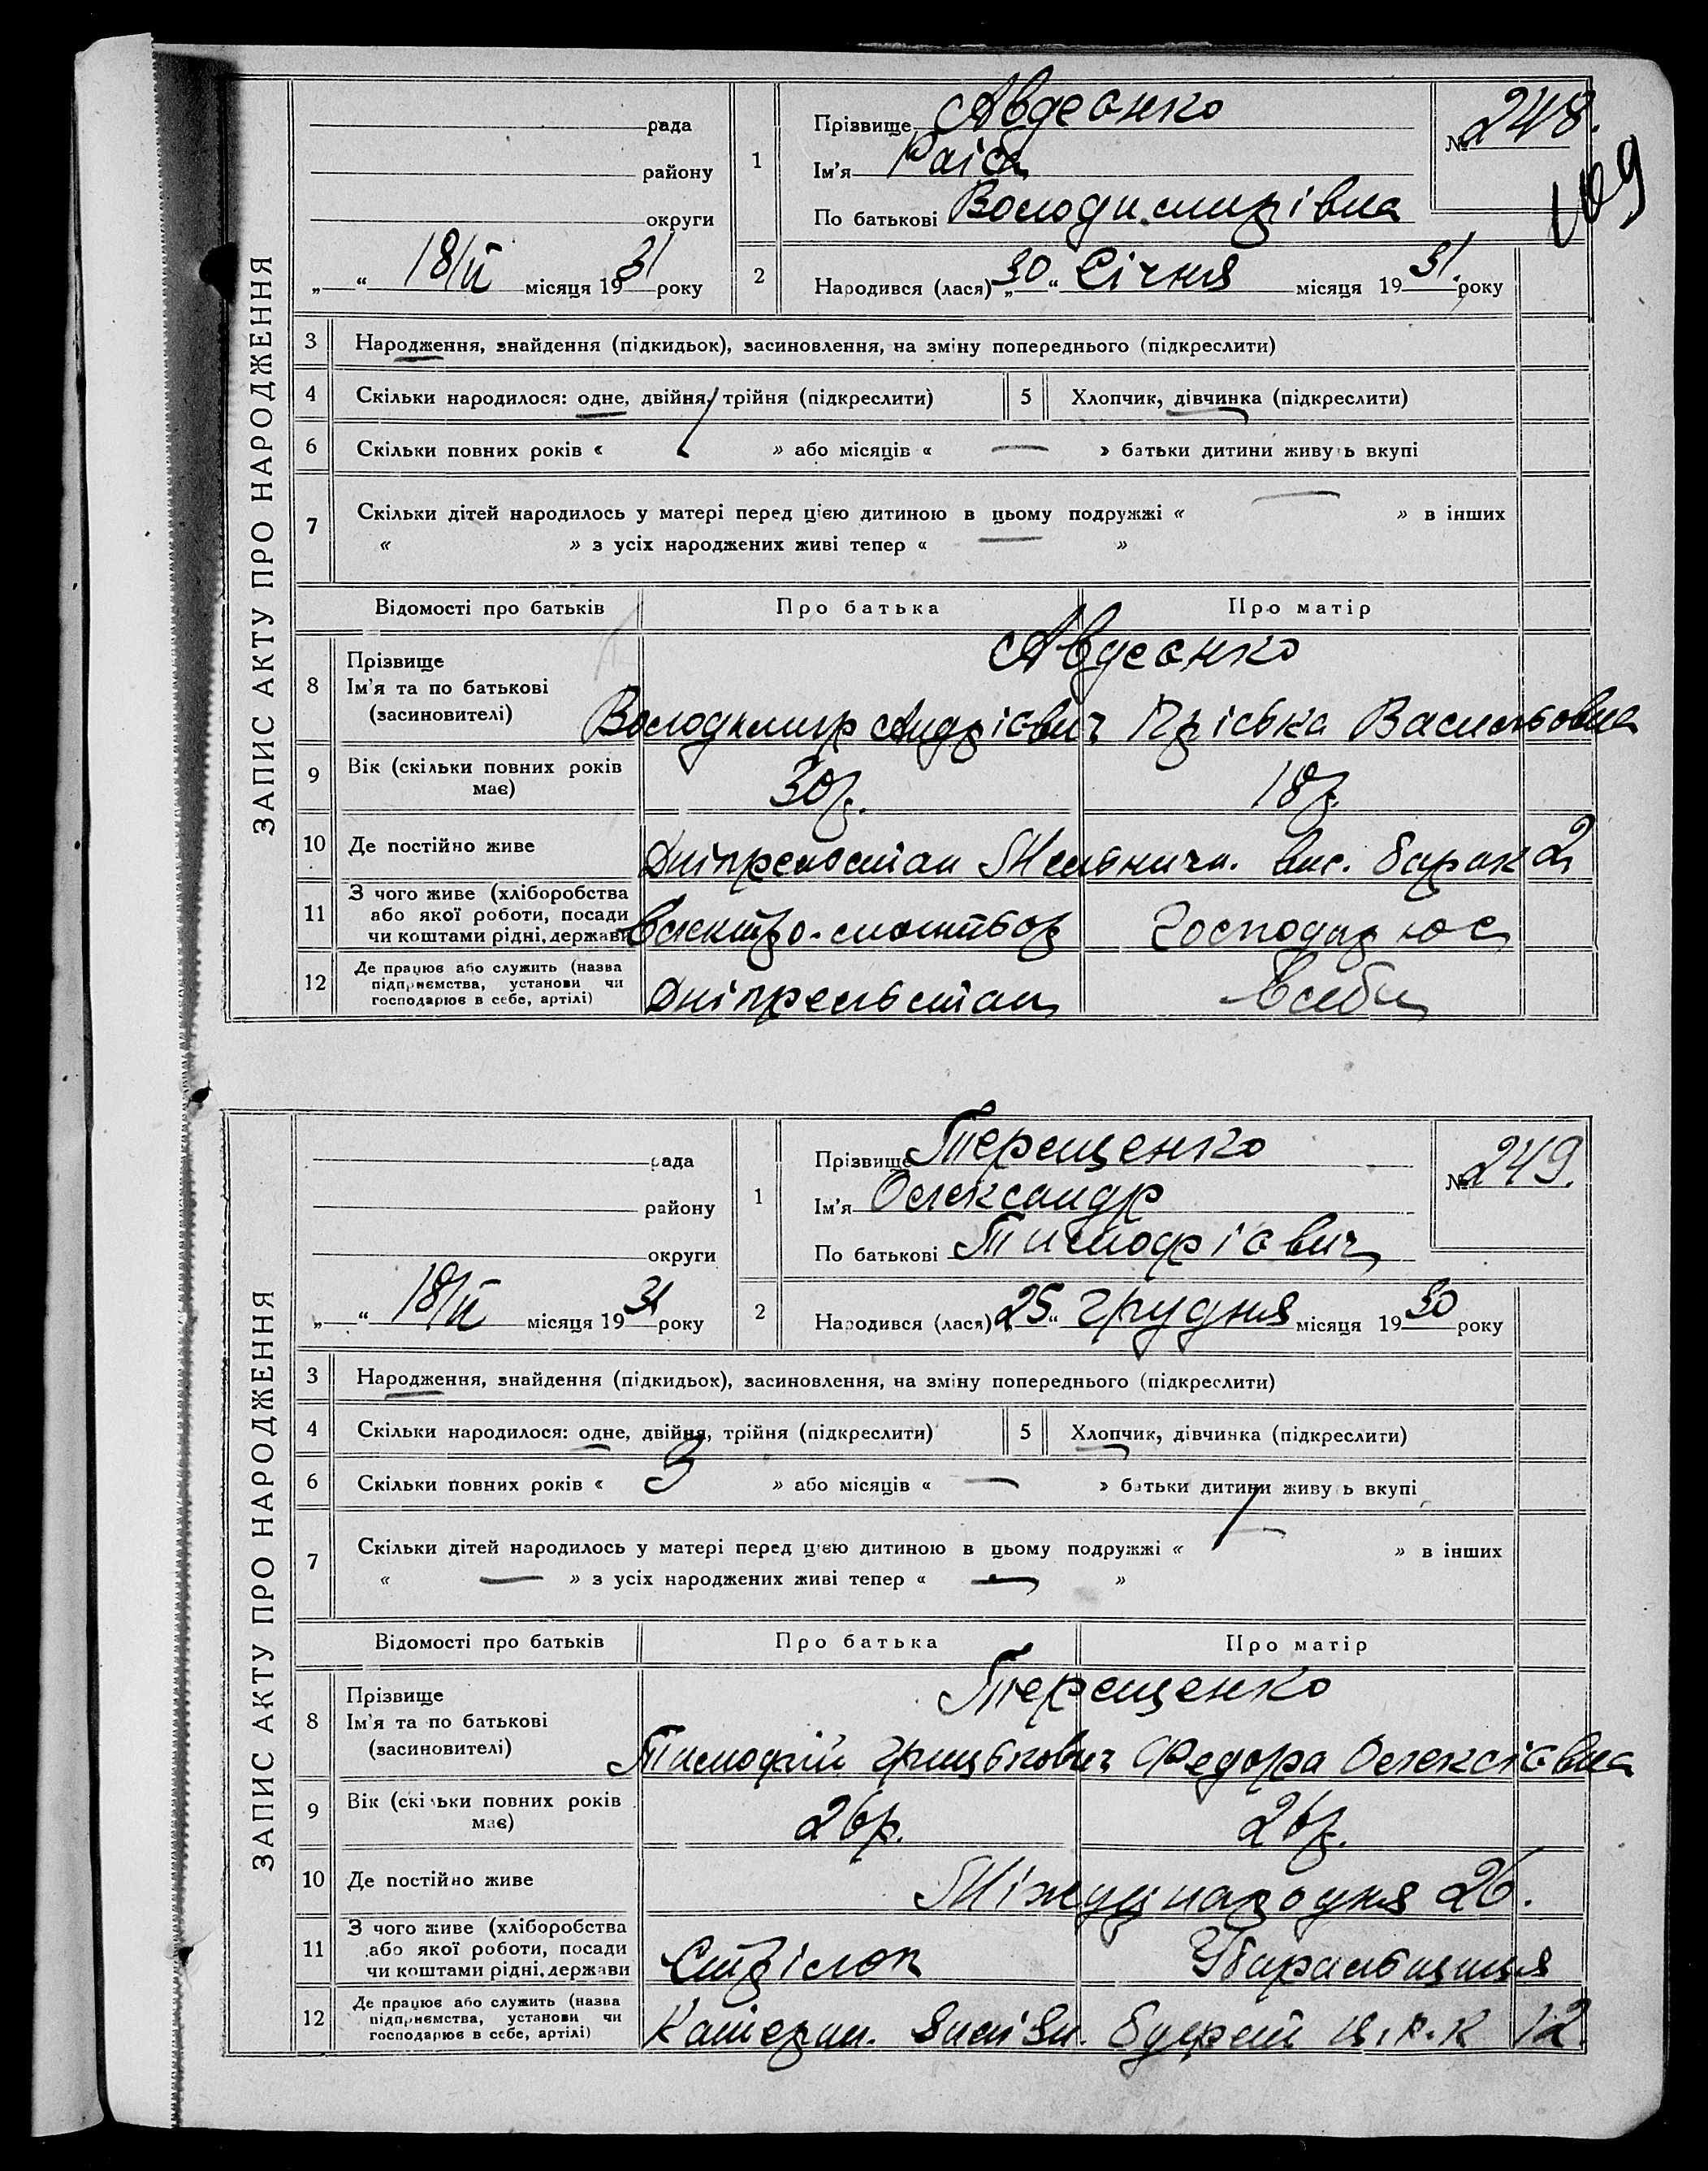 ЗАПИС АКТУ ПРО НАРОДЖЕННЯ
рада
району
округи
„ “ 18/II місяця 1931 року
1
Прізвище Авдеєнко
Ім'я Раіса
По батькові Володимирівна
№ 248.
109
2
Народився (лася) „30“ Січня місяця 1931. року
3 Народження, знайдення (підкидьок), засиновлення, на зміну попереднього (підкреслити)
4 Скільки народилося: одне, двійня, трійня (підкреслити)
5 Хлопчик, дівчинка (підкреслити)
6 Скільки повних років « 1 » або місяців « — » батьки дитини живуть вкупі
7 Скільки дітей народилось у матері перед цією дитиною в цьому подружжі « — » в інших
« » з усіх народжених живі тепер « »
Відомості про батьків Про батька Про матір
8 Прізвище
Ім'я та по батькові
(засиновителі)
Авдеєнко
Володимир Андрієвич Пріська Васильовна
9 Вік (скільки повних років має) 30р. 18р.
10 Де постійно живе Дніпрельстан вис. барак 2
11 З чого живе (хліборобства
або якої роботи, посади
чи коштами рідні, держави
Електро-монтьор Господарює
12 Де працює або служить (назва
підприємства, установи чи
господарює в себе, артілі)
Дніпрельстан В себе
ЗАПИС АКТУ ПРО НАРОДЖЕННЯ
рада
району
округи
„ “ 18/II місяця 1931 року
1
Прізвище Терещенко
Ім'я Олександр
По батькові Тимофієвич
№ 249.
2
Народився (лася) „25“ Грудня місяця 1930 року
3 Народження, знайдення (підкидьок), засиновлення, на зміну попереднього (підкреслити)
4 Скільки народилося: одне, двійня, трійня (підкреслити)
5 Хлопчик, дівчинка (підкреслити)
6 Скільки повних років « 3 » або місяців « — » батьки дитини живуть вкупі
7 Скільки дітей народилось у матері перед цією дитиною в цьому подружжі « 1 » в інших
« — » з усіх народжених живі тепер « — »
Відомості про батьків Про батька Про матір
8 Прізвище
Ім'я та по батькові
(засиновителі)
Терещенко
Тимофій Грицькович Федора Олексієвна
9 Вік (скільки повних років має) 26р. 26р.
10 Де постійно живе Міжднународня 26.
11 З чого живе (хліборобства
або якої роботи, посади
чи коштами рідні, держави
Стрілок Убиральщиця
12 Де працює або служить (назва
підприємства, установи чи
господарює в себе, артілі)
Катерин. Заліз. Ц.Р.К 12.